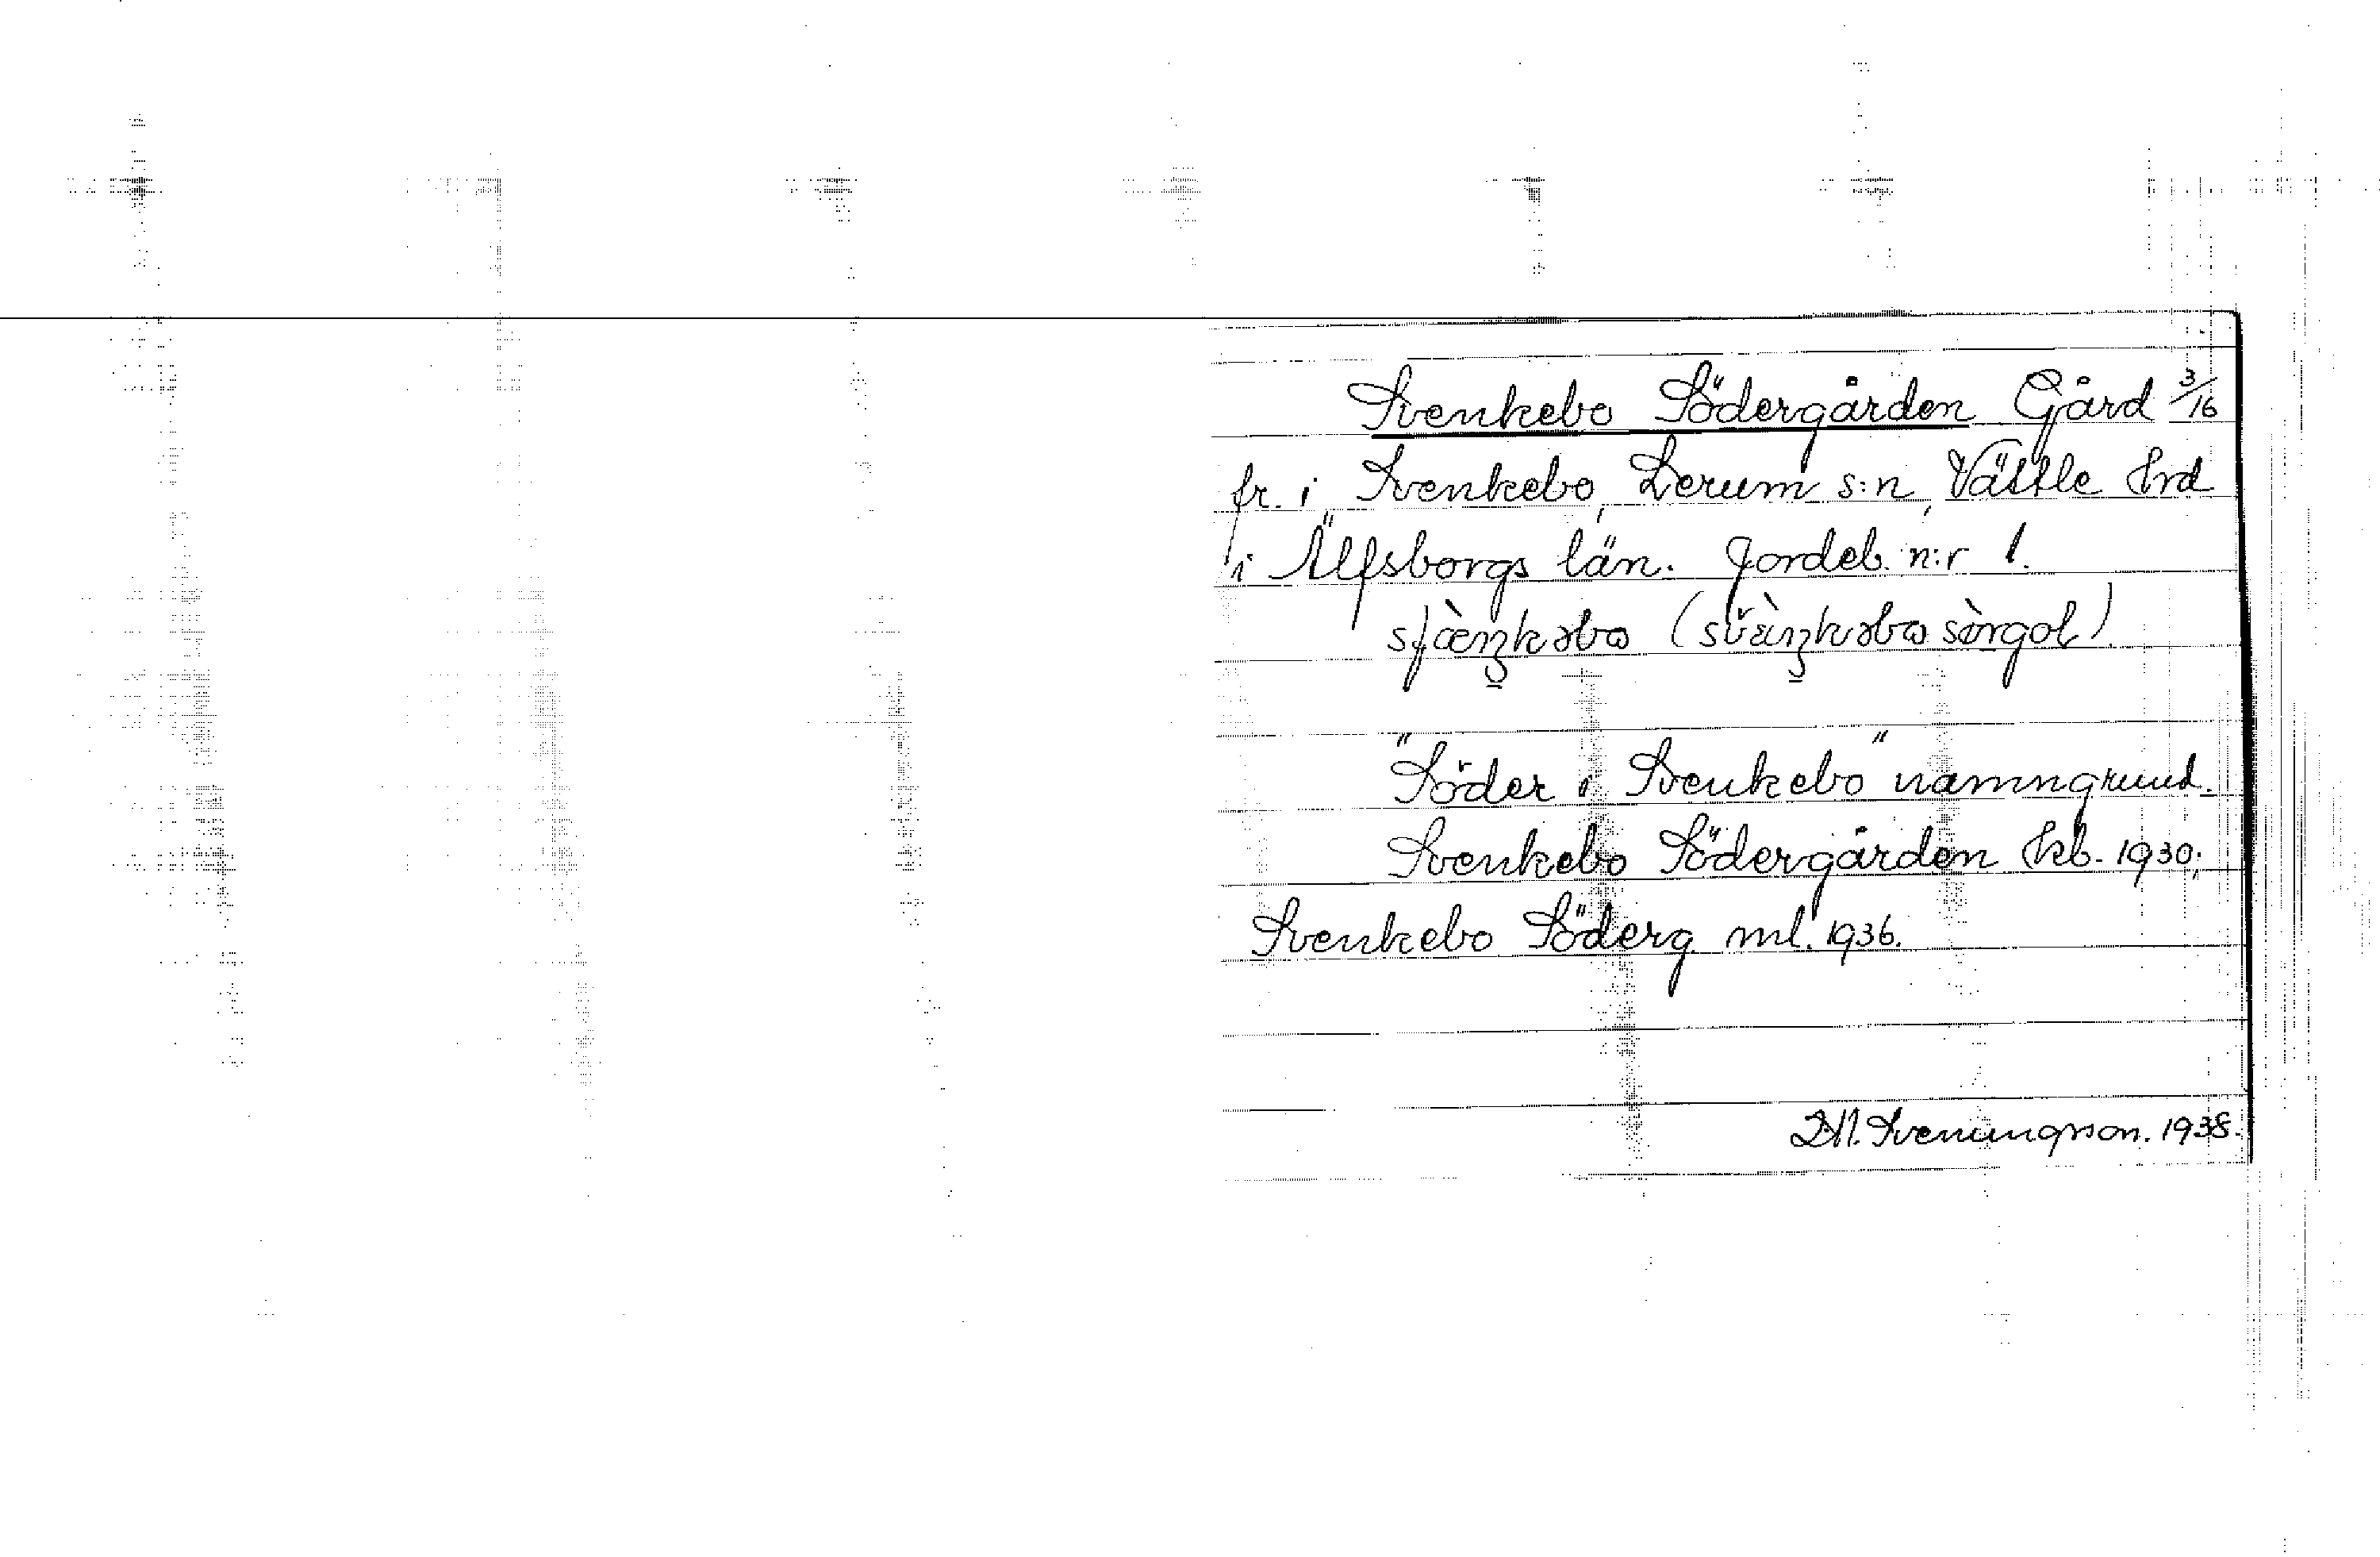 Svenkebo Södergården Gård 3/16
fr. i Svenkebo, Lerum s:n, Vättle Hrd
i Älfsborgs län. Jordeb. n:r 1.
"Söder i Svenkebo" namngrund.
Svenkebo Södergården Hkb. 1930;
Svenkebo Söderg ml. 1936.
Svenungsson. 1938.